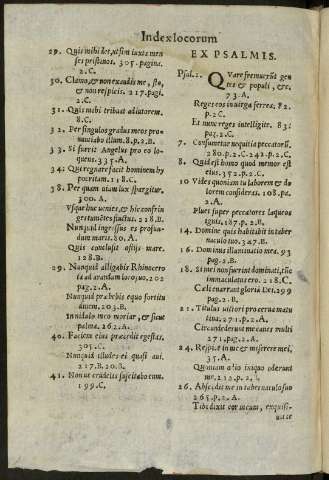 Index locorum
29. Quis mihi det, ut sim iuxta menses pristinos. 305. pagina.
2. C.
30. Clamo, & non exaudis me, sto,
& non respicis. 217. pagi.
2. C.
31. Quis mihi tribuat adiutorem.
8. C.
32. Per singulos gradus meos pronuntiabo illum. 8. p. 2. B.
33. Si fuerit Angelus pro eo loquens. 335. A.
34. Qui regnare facit hominem hypocritam. 118. C.
38. Per quam viam lux spargitur.
300. A.
Usque huc venies, & hic confringes tumētes fluctus. 228. B.
Nunquid ingressus es profundum maris. 80. A.
Quis conclusit ostijs mare.
128. B.
29. Nunquid alligabis Rhinocerota ad arandum loro, uo 202
pag. 2. A.
Nunquid præbebis equo fortitudinem. 203. B.
In nidulo meo moriar, & sicut
palma. 262. A.
40. Faciem eius præcedit egestas.
305. C.
Nunquid illudes ei quasi aui.
217. B. 20. B.
41. Non ut crudelis suscitabo eum.
199. C.
EX PSALMIS.
Psal. 2. QVare fremuerūt gentes & populi, &c.
73. A.
Reges eos in virga ferrea. 82.
p. 2. C.
Et nunc reges intelligite. 83.
pag. 2. C.
7. Consumetur nequitia peccatorū.
280. p. 2. C. 242. p. 2. C.
8. Quid est homo quod memor est
eius. 352. p. 2. C.
10 Vides quoniam tu laborem & dolorem consideras. 108. pa.
2. A.
Pluet super peccatores laqueos
ignis. 187. p. 2. B.
14. Domine quis habitabit in tabernaculo tuo. 347. B.
16. Dominus illuminatio mea. 93
pag. 2. B.
18. Si mei non fuerint dominati, tūc
immaculatus ero. 218. C.
Cæli enarrant gloriā Dei. 299
pag. 2. B.
21. Titulus victori pro cerua matutina. 271. p. 2. A.
Circundederunt me canes multi
271. pag. 2. A.
24. Respice in me & miserere mei.
35. A.
Quoniam odio iniquo oderunt
me. 212. p. 2.
26. Abscondit me in tabernaculo suo
265. p. 2. A.
Tibi dixit cor meum, exquisi-